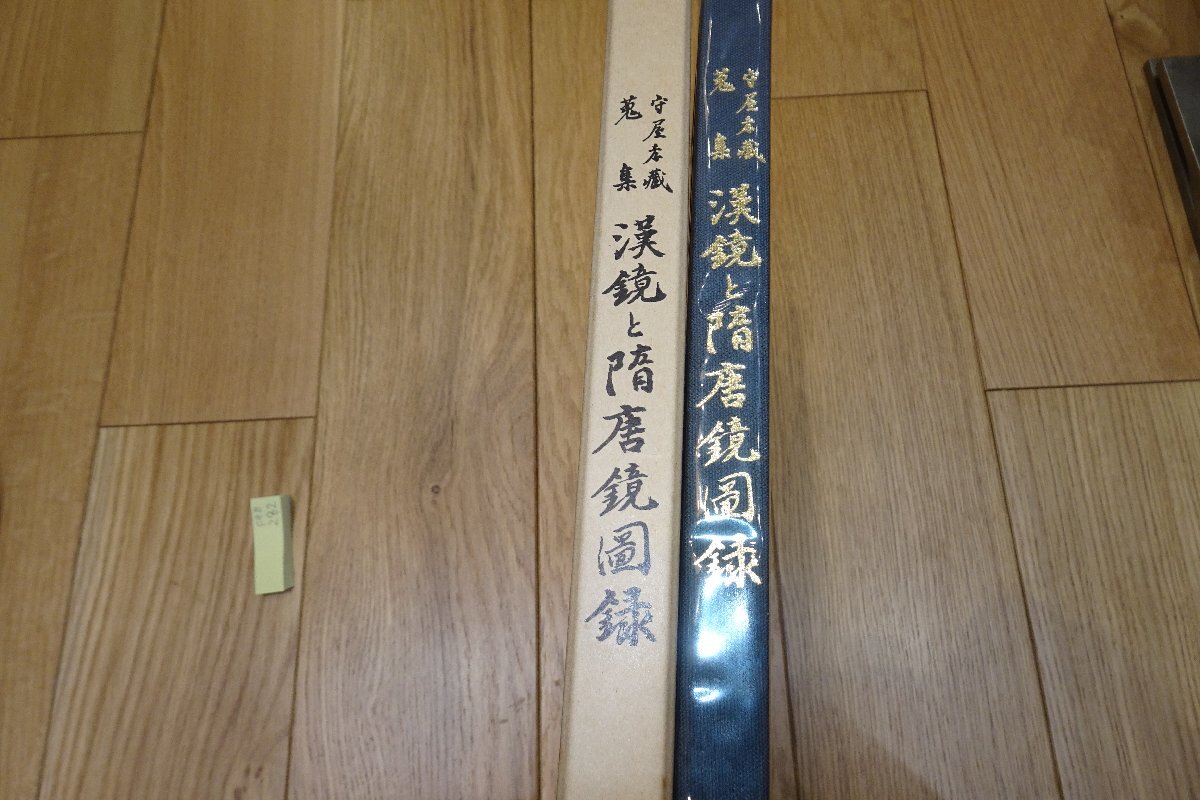 守屋孝藏
蒐集
漢鏡と隋唐鏡圖録
守屋孝藏
蒐集
漢鏡と隋唐鏡圖録
282